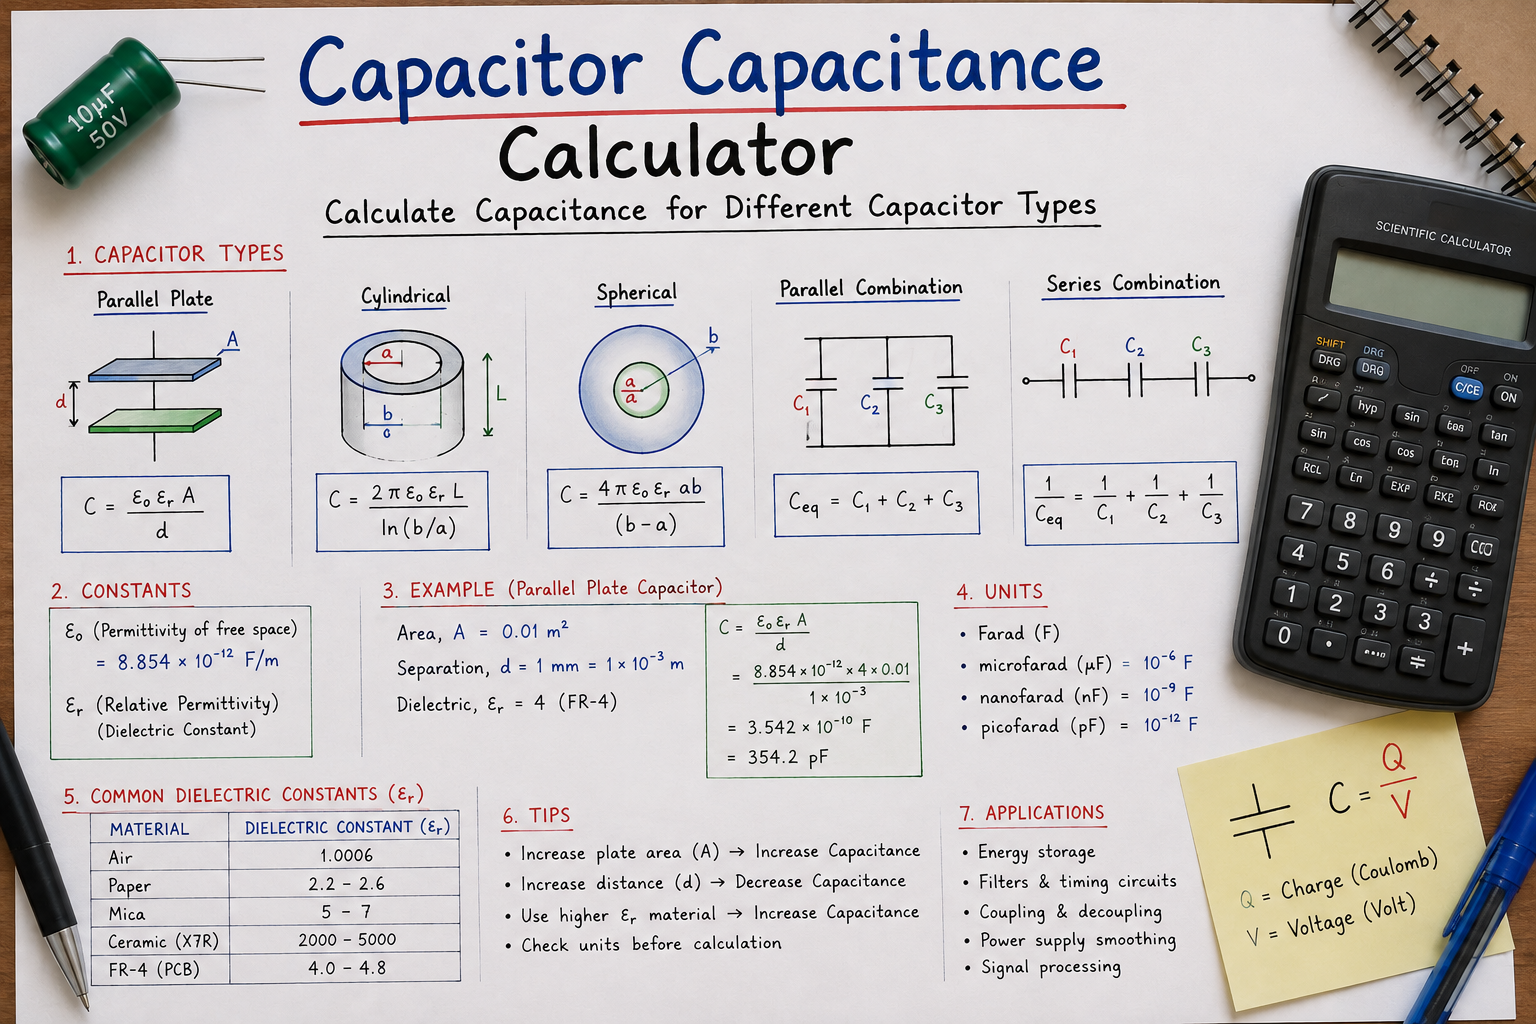 10µF
50V
Capacitor Capacitance
Calculator
Calculate Capacitance for Different Capacitor Types
1. CAPACITOR TYPES
Parallel Plate
A
d
C = ε₀ εᵣ A / d
Cylindrical
a
b
c
L
C = 2 π ε₀ εᵣ L / ln (b/a)
Spherical
b
a
a
C = 4 π ε₀ εᵣ ab / (b - a)
Parallel Combination
C₁
C₂
C₃
Ceq = C₁ + C₂ + C₃
Series Combination
C₁ C₂ C₃
1/Ceq = 1/C₁ + 1/C₂ + 1/C₃
2. CONSTANTS
ε₀ (Permittivity of free space)
= 8.854 × 10⁻¹² F/m
εᵣ (Relative Permittivity)
(Dielectric Constant)
3. EXAMPLE (Parallel Plate Capacitor)
Area, A = 0.01 m²
Separation, d = 1 mm = 1 × 10⁻³ m
Dielectric, εᵣ = 4 (FR-4)
C = ε₀ εᵣ A / d
= 8.854 × 10⁻¹² × 4 × 0.01 / 1 × 10⁻³
= 3.542 × 10⁻¹⁰ F
= 354.2 pF
4. UNITS
• Farad (F)
• microfarad (µF) = 10⁻⁶ F
• nanofarad (nF) = 10⁻⁹ F
• picofarad (pF) = 10⁻¹² F
5. COMMON DIELECTRIC CONSTANTS (εᵣ)
MATERIAL DIELECTRIC CONSTANT (εᵣ)
Air 1.0006
Paper 2.2 – 2.6
Mica 5 – 7
Ceramic (X7R) 2000 – 5000
FR-4 (PCB) 4.0 – 4.8
6. TIPS
• Increase plate area (A) → Increase Capacitance
• Increase distance (d) → Decrease Capacitance
• Use higher εᵣ material → Increase Capacitance
• Check units before calculation
7. APPLICATIONS
• Energy storage
• Filters & timing circuits
• Coupling & decoupling
• Power supply smoothing
• Signal processing
C = Q / V
Q = Charge (Coulomb)
V = Voltage (Volt)
SCIENTIFIC CALCULATOR
SHIFT
DRG
OFF
ON
DRG DRG C/CE ON
hyp sin tan
sin cos cos ln
RCL EXP
7 8 9 9
4 5 6 ÷ ÷
1 2 3 3
0 • +